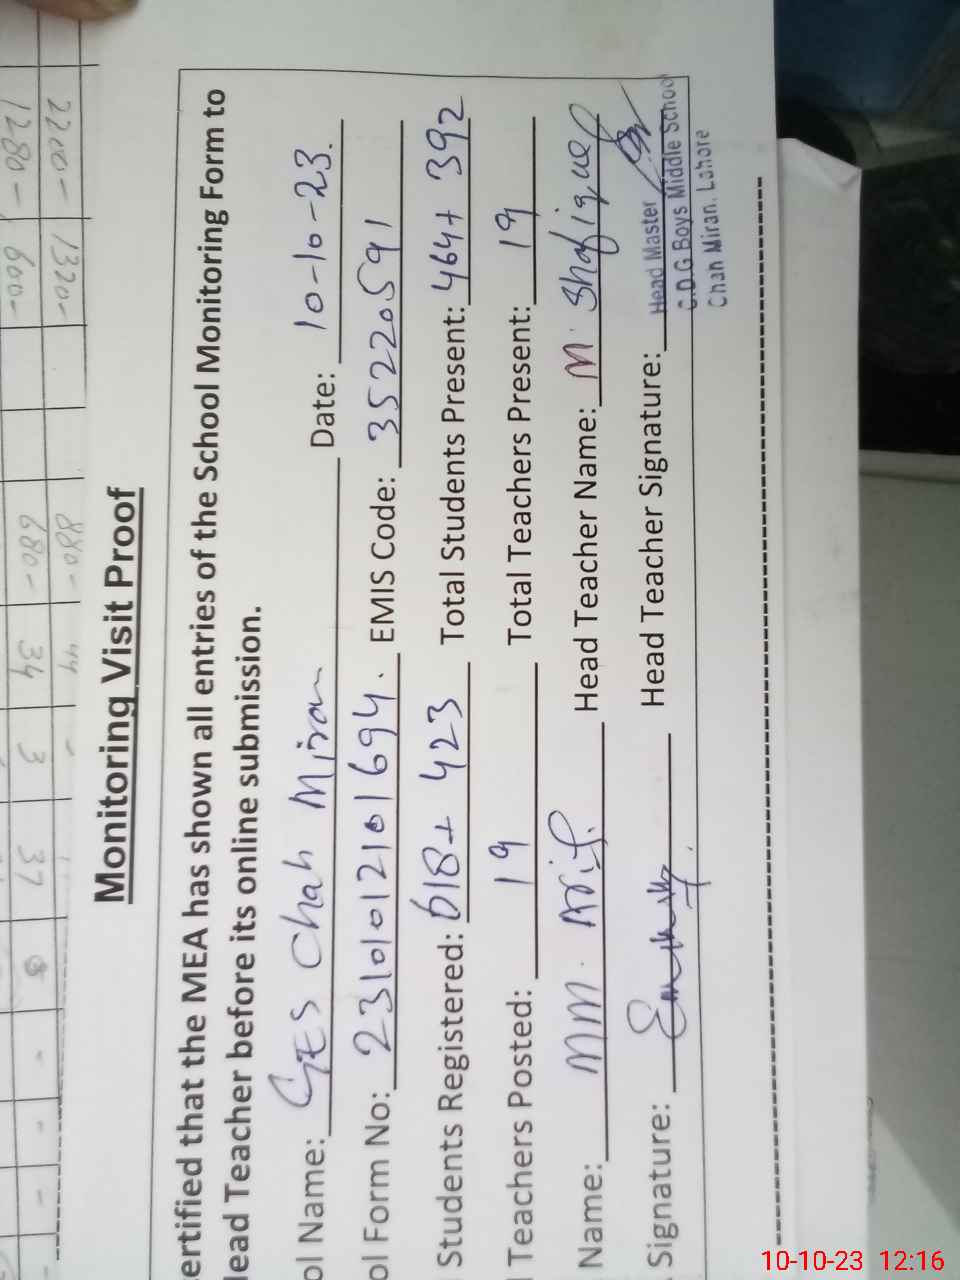 2200- 1320- 880- 44 -
1280- 600- 680- 34 3 37
Monitoring Visit Proof
ertified that the MEA has shown all entries of the School Monitoring Form to
lead Teacher before its online submission.
ol Name: GES Chah Miran Date: 10-10-23.
ol Form No: 23101012101694. EMIS Code: 35220591
Students Registered: 618+ 423 Total Students Present: 464+ 392
Teachers Posted: 19 Total Teachers Present: 19
Name: MM. Arif. Head Teacher Name: M. Shafique
Signature: Head Teacher Signature:
Head Master
C.D.G Boys Middle School
Chah Miran, Lahore
10-10-23 12:16